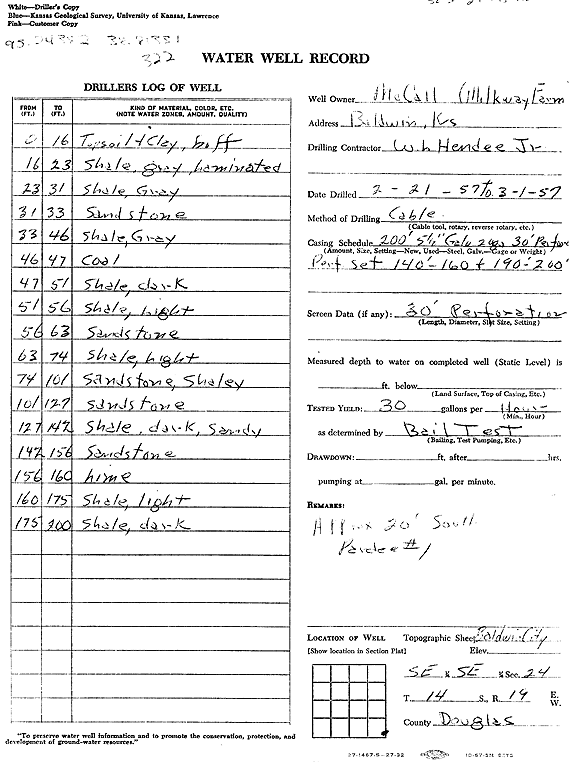 White—Driller's Copy
Blue—Kansas Geological Survey, University of Kansas, Lawrence
Pink—Customer Copy
322
WATER WELL RECORD
DRILLERS LOG OF WELL
FROM (FT.) TO (FT.) KIND OF MATERIAL, COLOR, ETC. (NOTE WATER ZONES, AMOUNT, QUALITY)
0 16 Topsoil & Clay, buff
16 23 Shale, gray, Laminated
23 31 Shale, Gray
31 33 Sandstone
33 46 Shale, Gray
46 47 Coal
47 51 Shale, dark
51 56 Shale, Light
56 63 Sandstone
63 74 Shale, Light
74 101 Sandstone, Shaley
101 127 Sandstone
127 142 Shale, dark, Sandy
142 156 Sandstone
156 160 Lime
160 175 Shale, light
175 200 Shale, dark
"To preserve water well information and to promote the conservation, protection, and
development of ground-water resources."
Well Owner McCall Milkway Farm
Address Baldwin, Ks
Drilling Contractor W.L. Hendee Jr
Date Drilled 2-21-57 to 3-1-57
Method of Drilling Cable
(Cable tool, rotary, reverse rotary, etc.)
Casing Schedule 200' 5½" Galv 30' Perfor
(Amount, Size, Setting—New, Used—Steel, Galv.—Gage or Weight)
Perf set 140'-160 + 190'-200'
Screen Data (if any): 30' Perforation
(Length, Diameter, Slot Size, Setting)
Measured depth to water on completed well (Static Level) is
ft. below
(Land Surface, Top of Casing, Etc.)
TESTED YIELD: 30 gallons per Hour
(Min., Hour)
as determined by Bail Test
(Bailing, Test Pumping, Etc.)
DRAWDOWN: ft. after hrs.
pumping at gal. per minute.
REMARKS:
Approx 20' South
Pardee #1
LOCATION OF WELL Topographic Sheet Baldwin City
[Show location in Section Plat] Elev.
SE ¼ SE ¼ Sec. 24
T. 14 S., R. 19 E. W.
County Douglas
27-1467-5-27-32